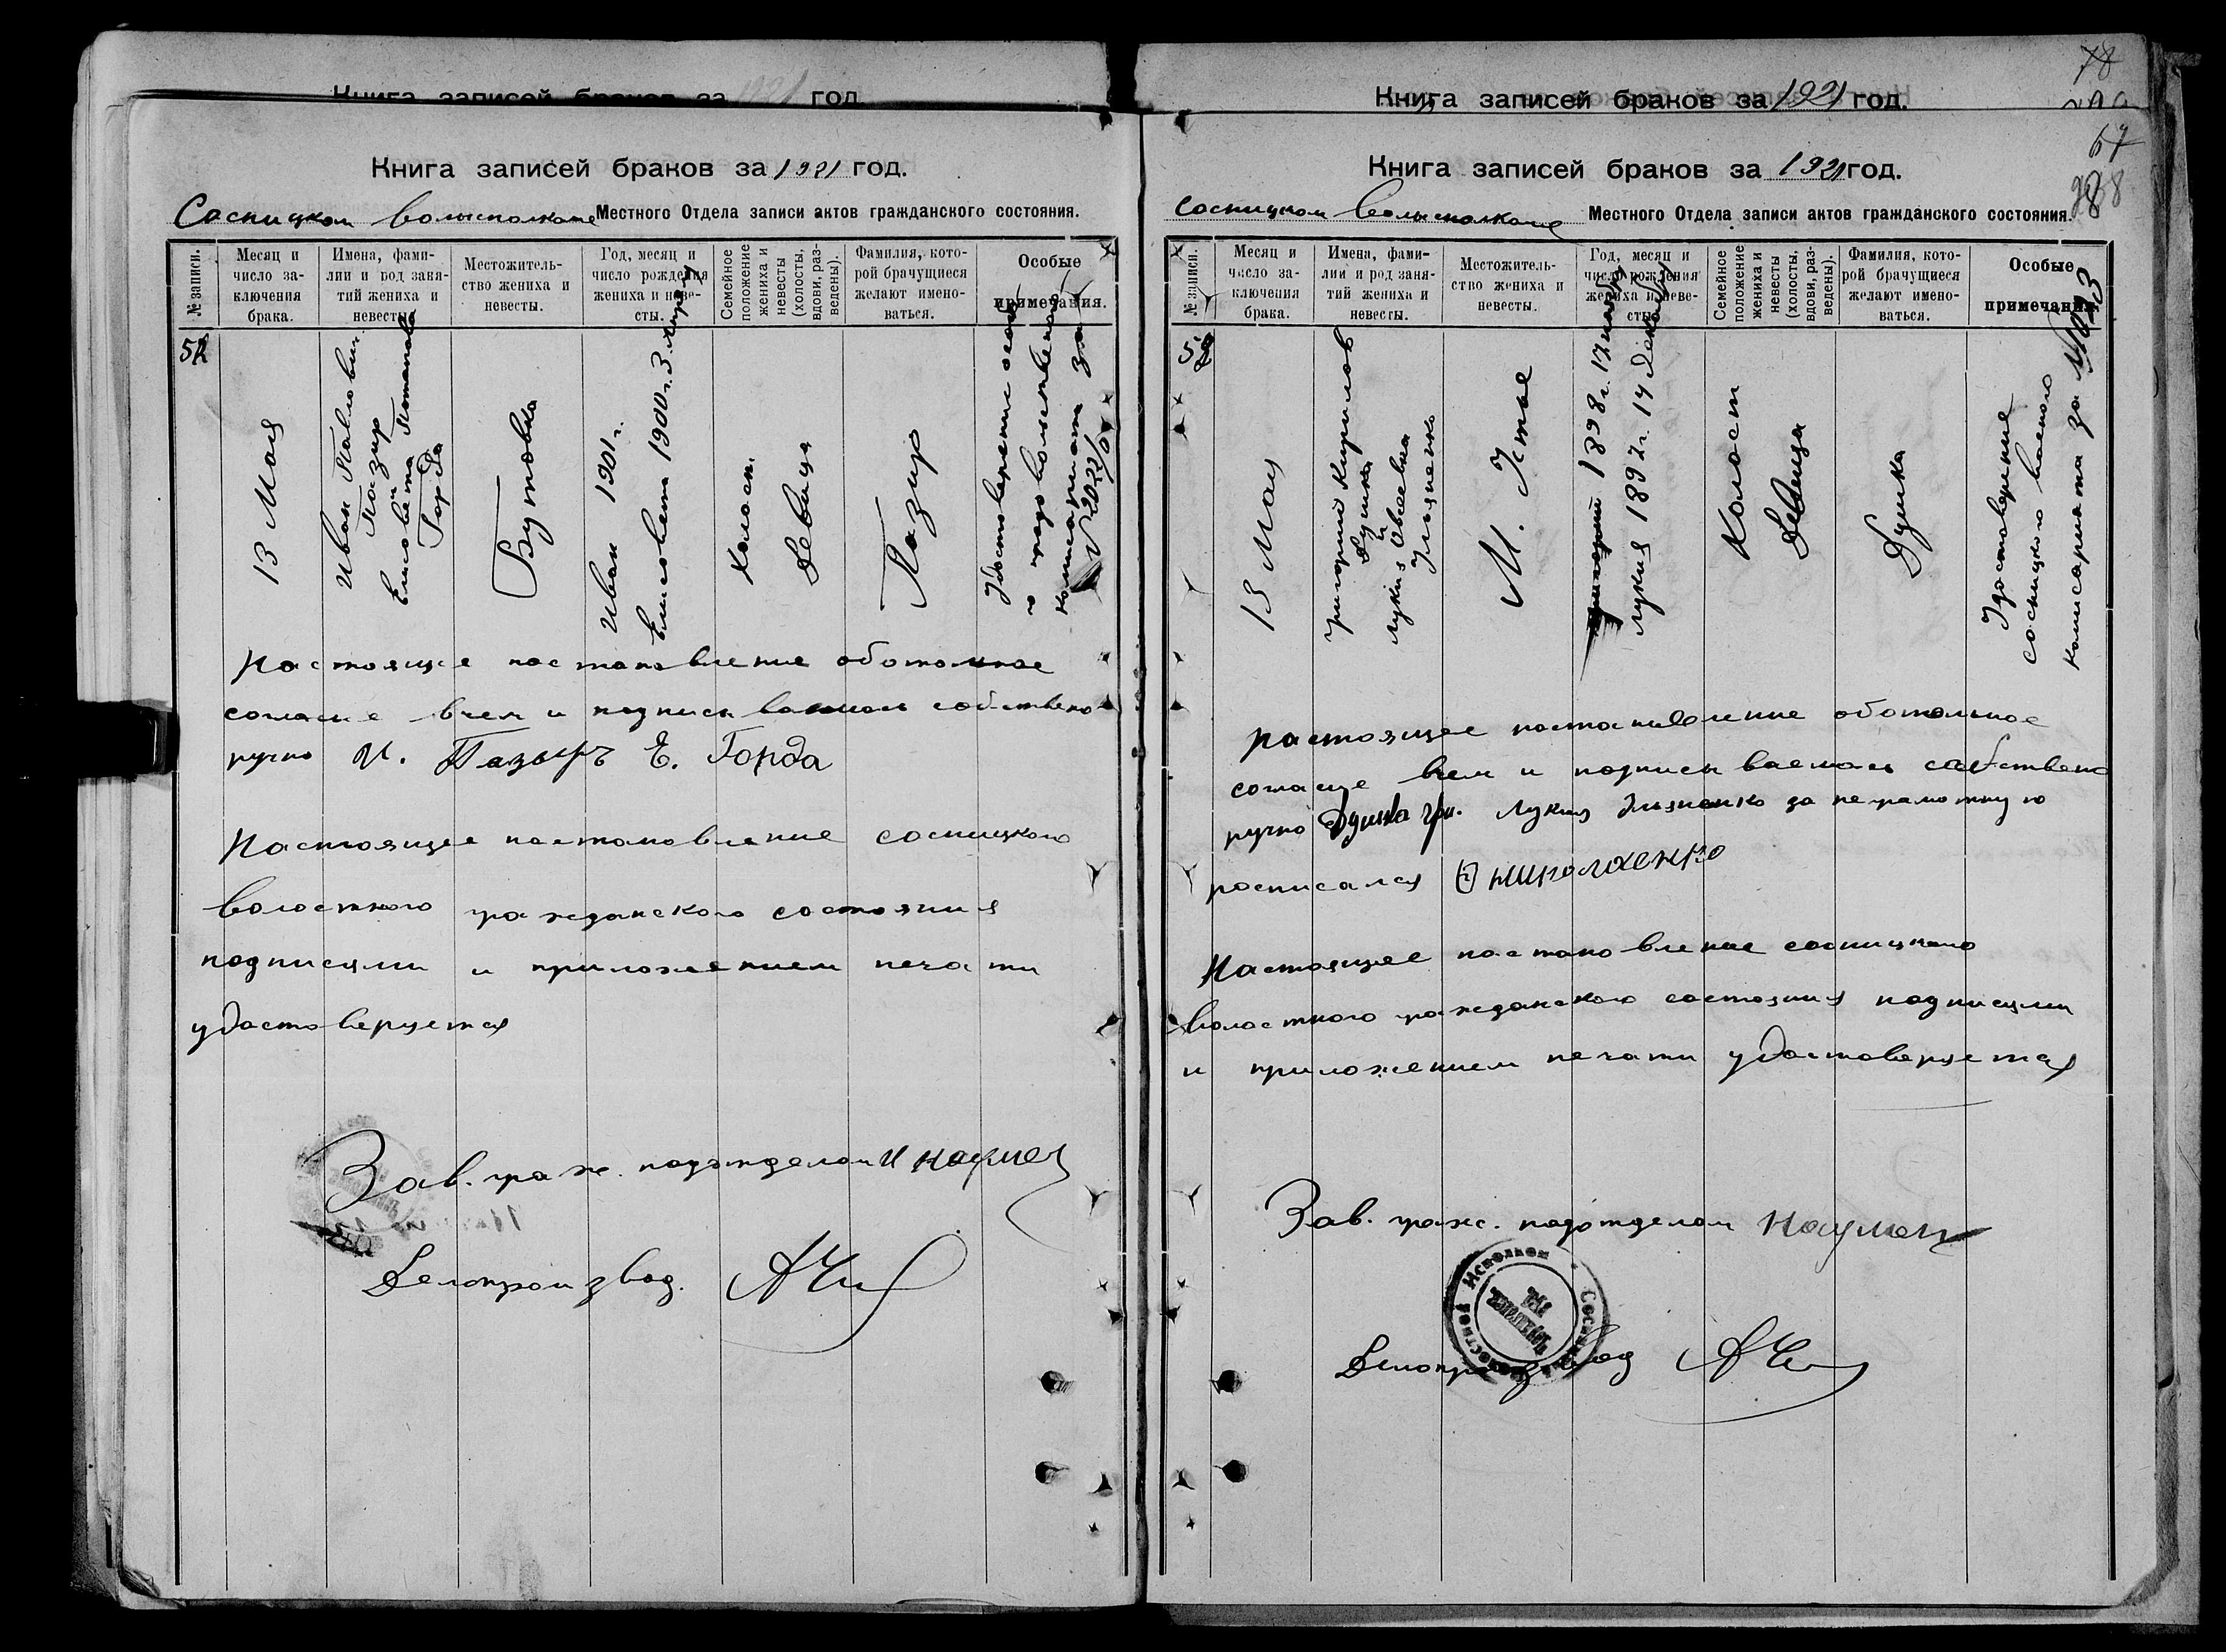 Книга записей браков за 1921 год.
Сосницком волисполкоме Местного Отдела записи актов гражданского состояния.
№ записи.
Месяц и число заключения брака.
Имена, фамилии и род занятий жениха и невесты.
Местожительство жениха и невесты.
Год, месяц и число рождения жениха и невесты.
Семейное положение жениха и невесты (холосты, вдовы, разведены).
Фамилия, которой брачущиеся желают именоваться.
Особые примечания.
52
13 Мая
Иван Павлович
Пазир
и
Елисовета Потаповна
Горда
Бутовка
Иван 1901 г.
Елисовета 1900 г. 3
холост.
Девица
Пазир
Удостоверение
комисариата за
№ 2022/
Настоящее постановление обоюдное
согласие в чем и подписываемся собствено
ручно И. Пазыръ Е. Горда
Настоящее постановление сосницкого
волостного гражданского состояния
подписями и приложением печати
удостоверяется
Зав. граж. подотделом И Наумец
Делопроизвод.
78
Книга записей браков за 1921 год.
67
Книга записей браков за 1921 год.
Сосницком волисполкоме Местного Отдела записи актов гражданского состояния.
№ записи.
Месяц и число заключения брака.
Имена, фамилии и род занятий жениха и невесты.
Местожительство жениха и невесты.
Год, месяц и число рождения жениха и невесты.
Семейное положение жениха и невесты (холосты, вдовы, разведены).
Фамилия, которой брачущиеся желают именоваться.
Особые примечания.
13 Мая
Григорий Кирилов
Душка
и
Лукия Овсеевна
М. Устье
Григорий 1898 г. 17 ноября
Лукия 1897 г. 14 Декабря
Холост
Девица
Душка
Удостоверение
сосницкого военого
комисариата за №
Настоящее постановление обоюдное
согласие в чем и подписываемся собствено
ручно Душка Гри. Лукия за неграмотную
росписался
Настоящее постановление сосницкого
волостного гражданского состояния подписями
и приложением печати удостоверяется
Зав. граж. подотделом Наумец
Делопроизвод